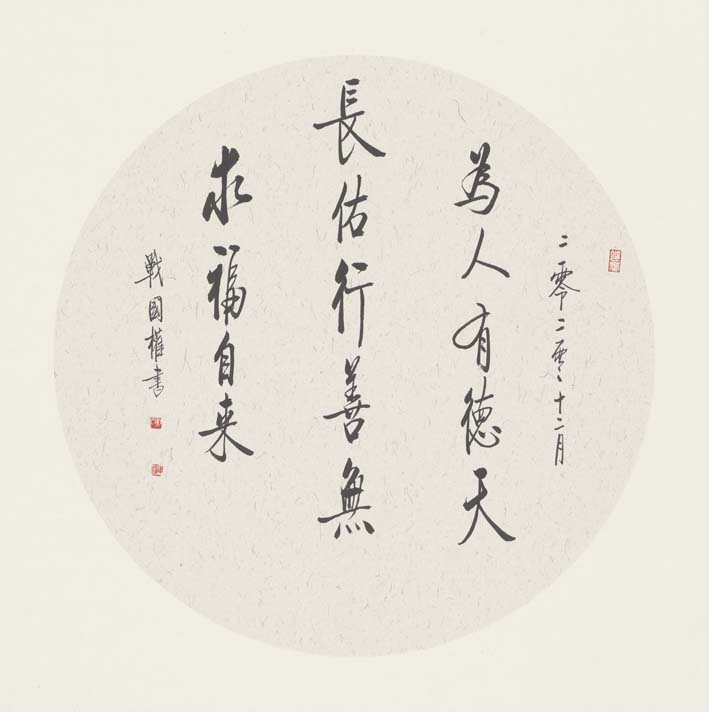 二零二零、十二月
為人有德天
長佑行善無
求福自来
戰國權書